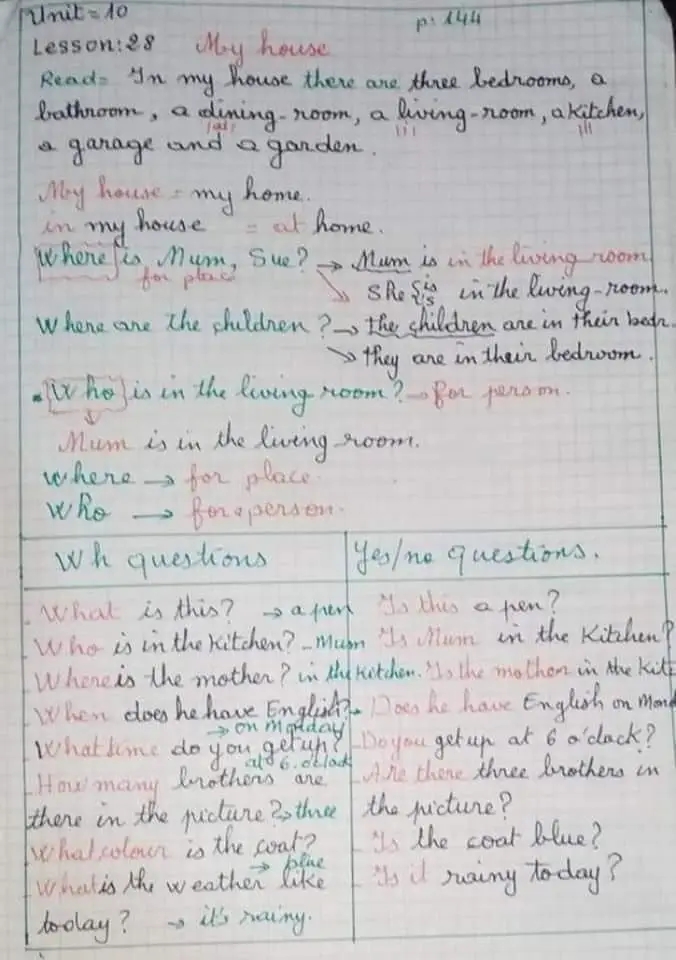 Unit = 10
p: 144
Lesson: 28 My house
Read = In my house there are three bedrooms, a
bathroom, a dining-room, a living-room, a kitchen,
a garage and a garden.
My house = my home.
in my house = at home.
Where is Mum, Sue? → Mum is in the living room
for place
She {is 's in the living-room.
Where are the children? → the children are in their bedr.
→ they are in their bedroom.
. Who is in the living room? → for person.
Mum is in the living-room.
where → for place.
who → for person.
Wh questions
Yes/no questions.
- What is this? → a pen
- Who is in the kitchen? - Mum
- Where is the mother? in the kitchen.
- When does he have English?
→ on Monday
- What time do you get up?
at 6. o'clock
- How many brothers are
there in the picture? → three
What colour is the coat?
→ blue
- What is the weather like
today? → it's rainy.
Is this a pen?
Is Mum in the kitchen?
Is the mother in the kit
- Does he have English on Mond
- Do you get up at 6 o'clock?
- Are there three brothers in
the picture?
- Is the coat blue?
- Is it rainy today?